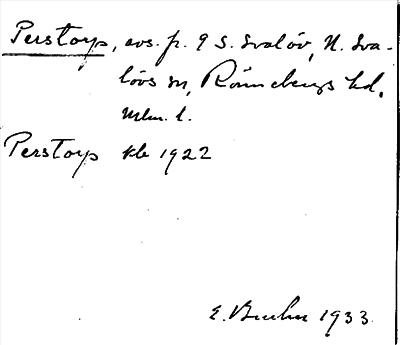 Perstorp, avs. fr. 9 S. Svalöv, N. Sva-
lövs sn, Rönnebergs hd.
Mlm. l.
Perstorp kb 1922
E. Bruhn 1933